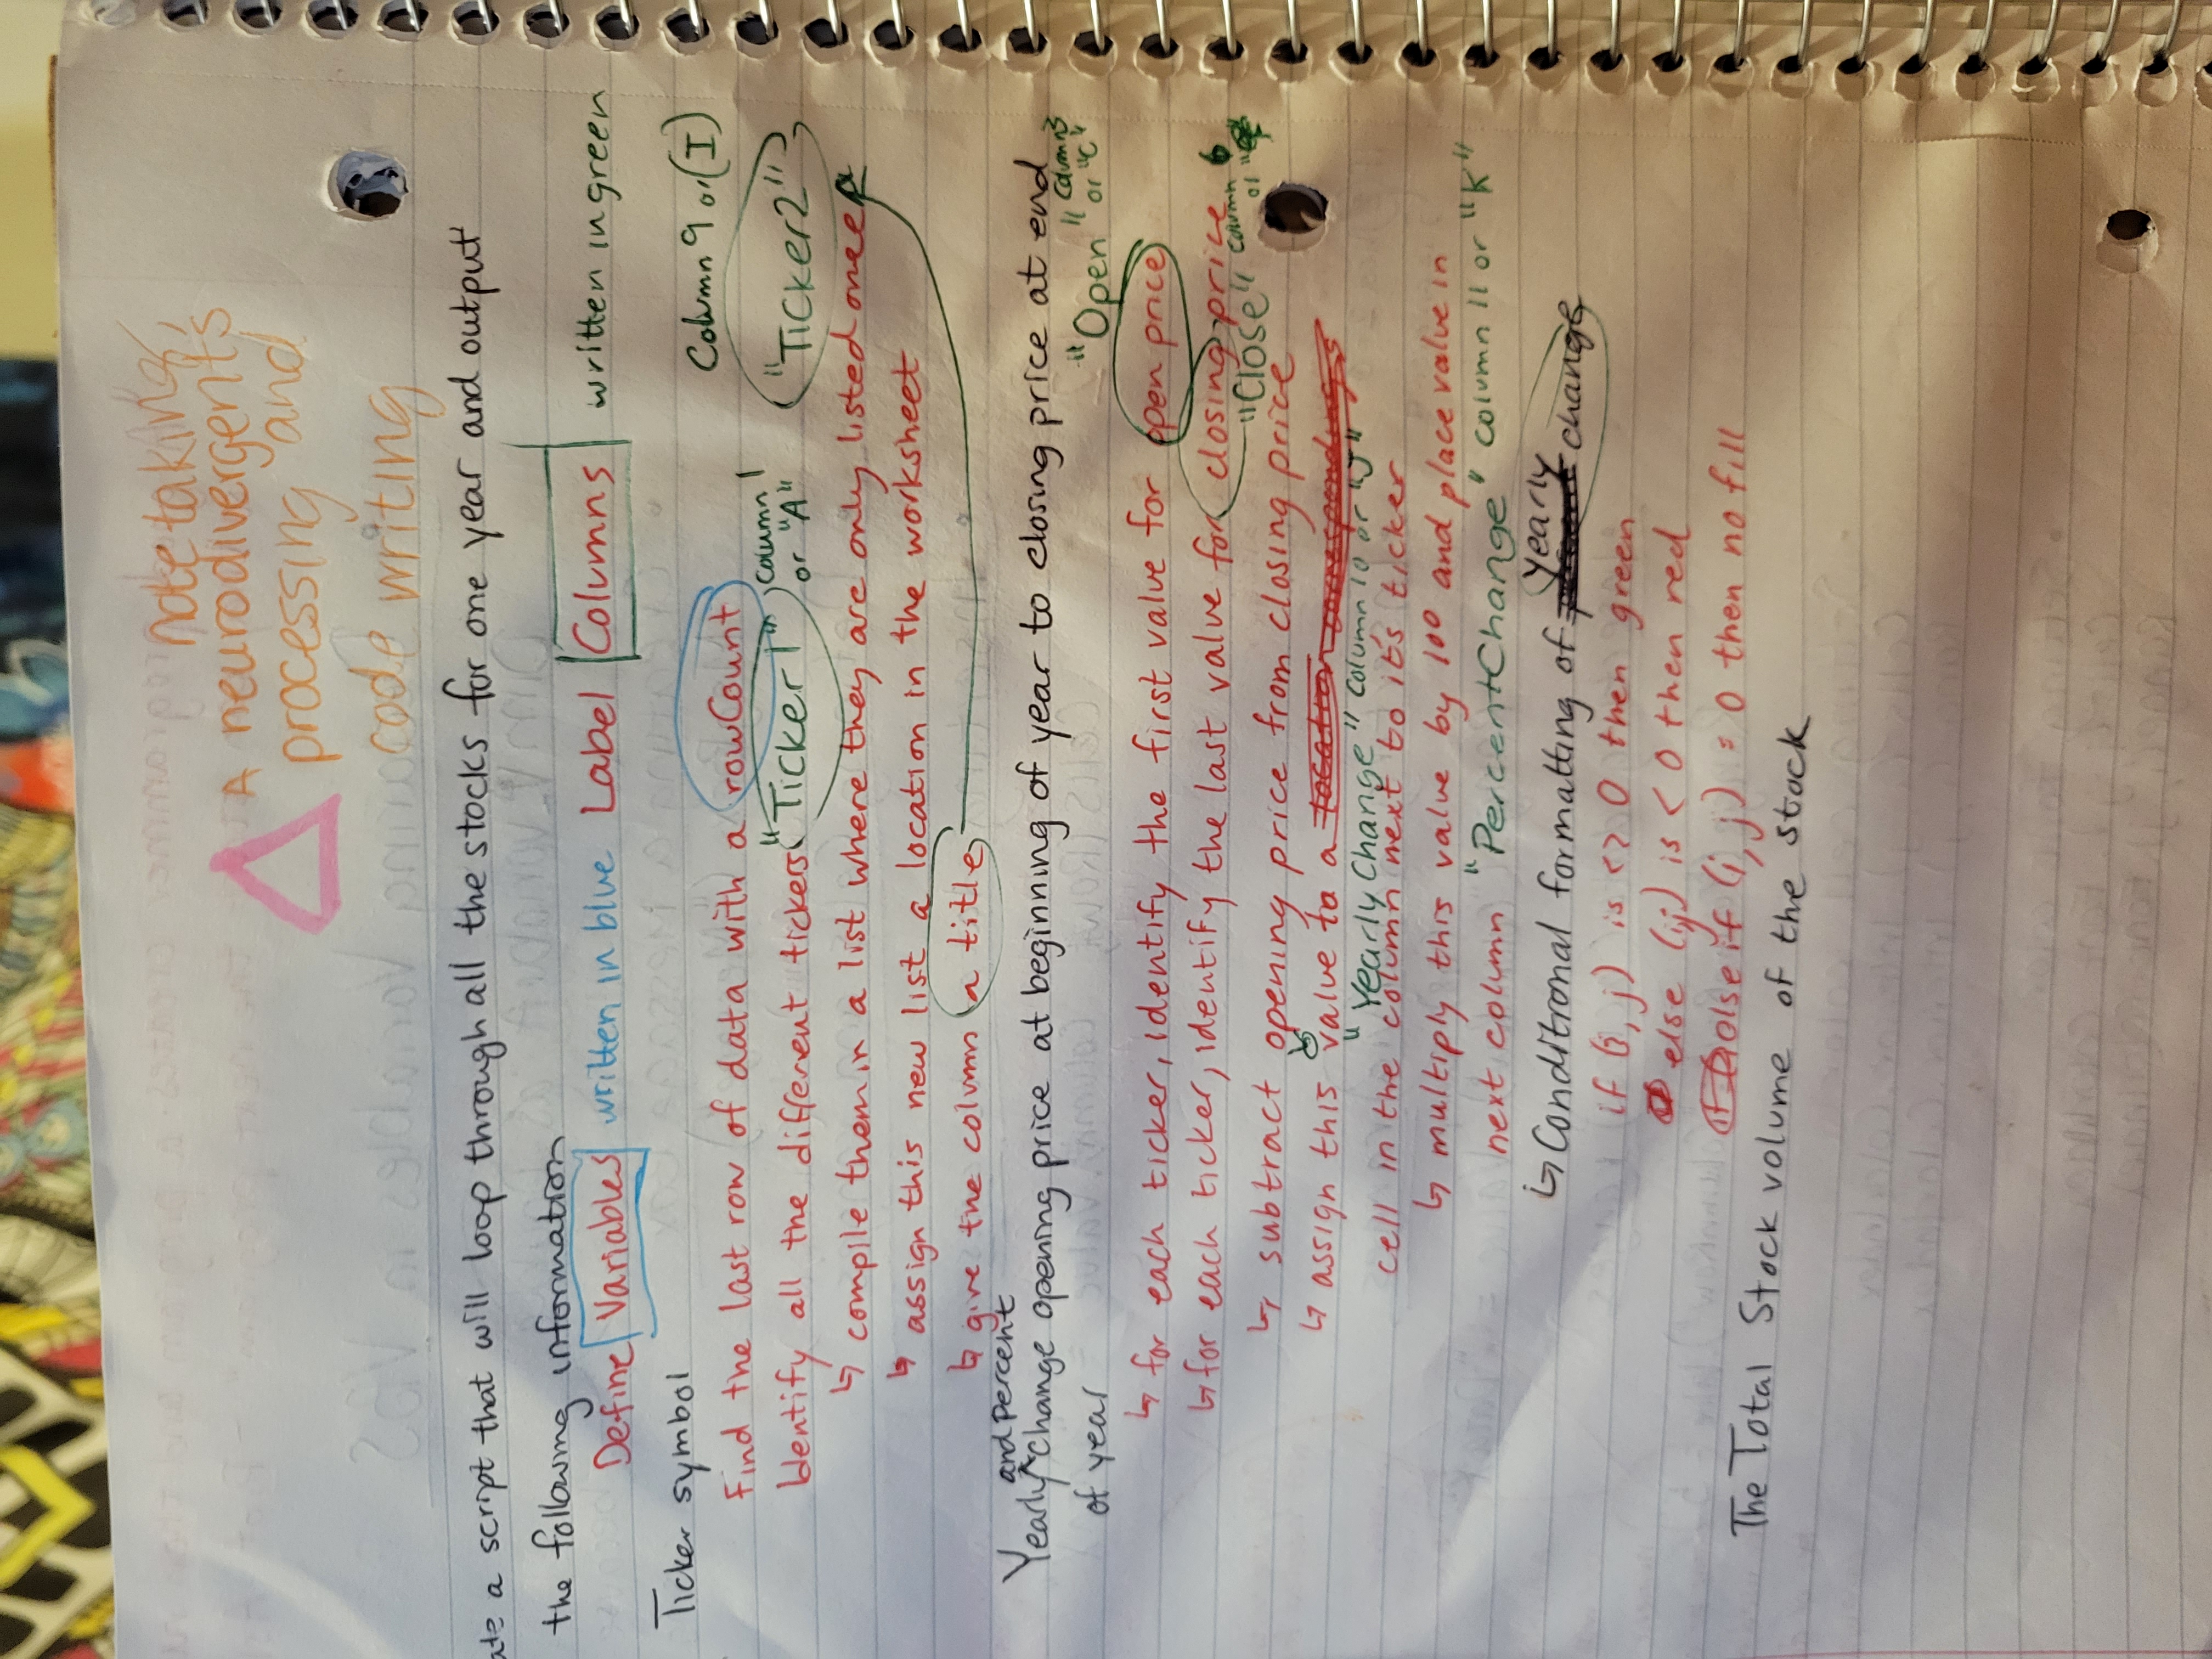 note taking,
A neurodivergent's
processing and
code writing
ate a script that will loop through all the stocks for one year and output
the following information
Define Variables written in blue Label Columns written in green
Ticker symbol
Column 9 or (I)
Find the last row of data with a rowCount
Identify all the different tickers "Ticker1" Column 1 or "A" "Ticker2"
↳ compile them in a list where they are only listed once
↳ assign this new list a location in the worksheet
↳ give the column a title
and percent
Yearly ^ change opening price at beginning of year to closing price at end
of year
"Open" Column 3 or "C"
↳ for each ticker, identify the first value for open price
↳ for each ticker, identify the last value for closing price
"Close" Column 6 or
↳ subtract opening price from closing price
↳ assign this value to a location corresponding
"Yearly Change" Column 10 or "J"
cell in the column next to it's ticker
↳ multiply this value by 100 and place value in
next column "PercentChange" Column 11 or "K"
yearly
↳ Conditional formatting of change
if (i, j) is <> 0 then green
else (i,j) is < 0 then red
else if (i, j) = 0 then no fill
The Total Stock volume of the stock